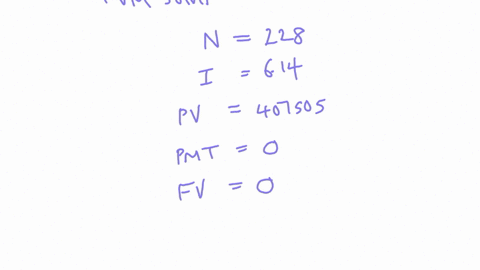 N = 228
I = 614
PV = 407505
PMT = 0
FV = 0